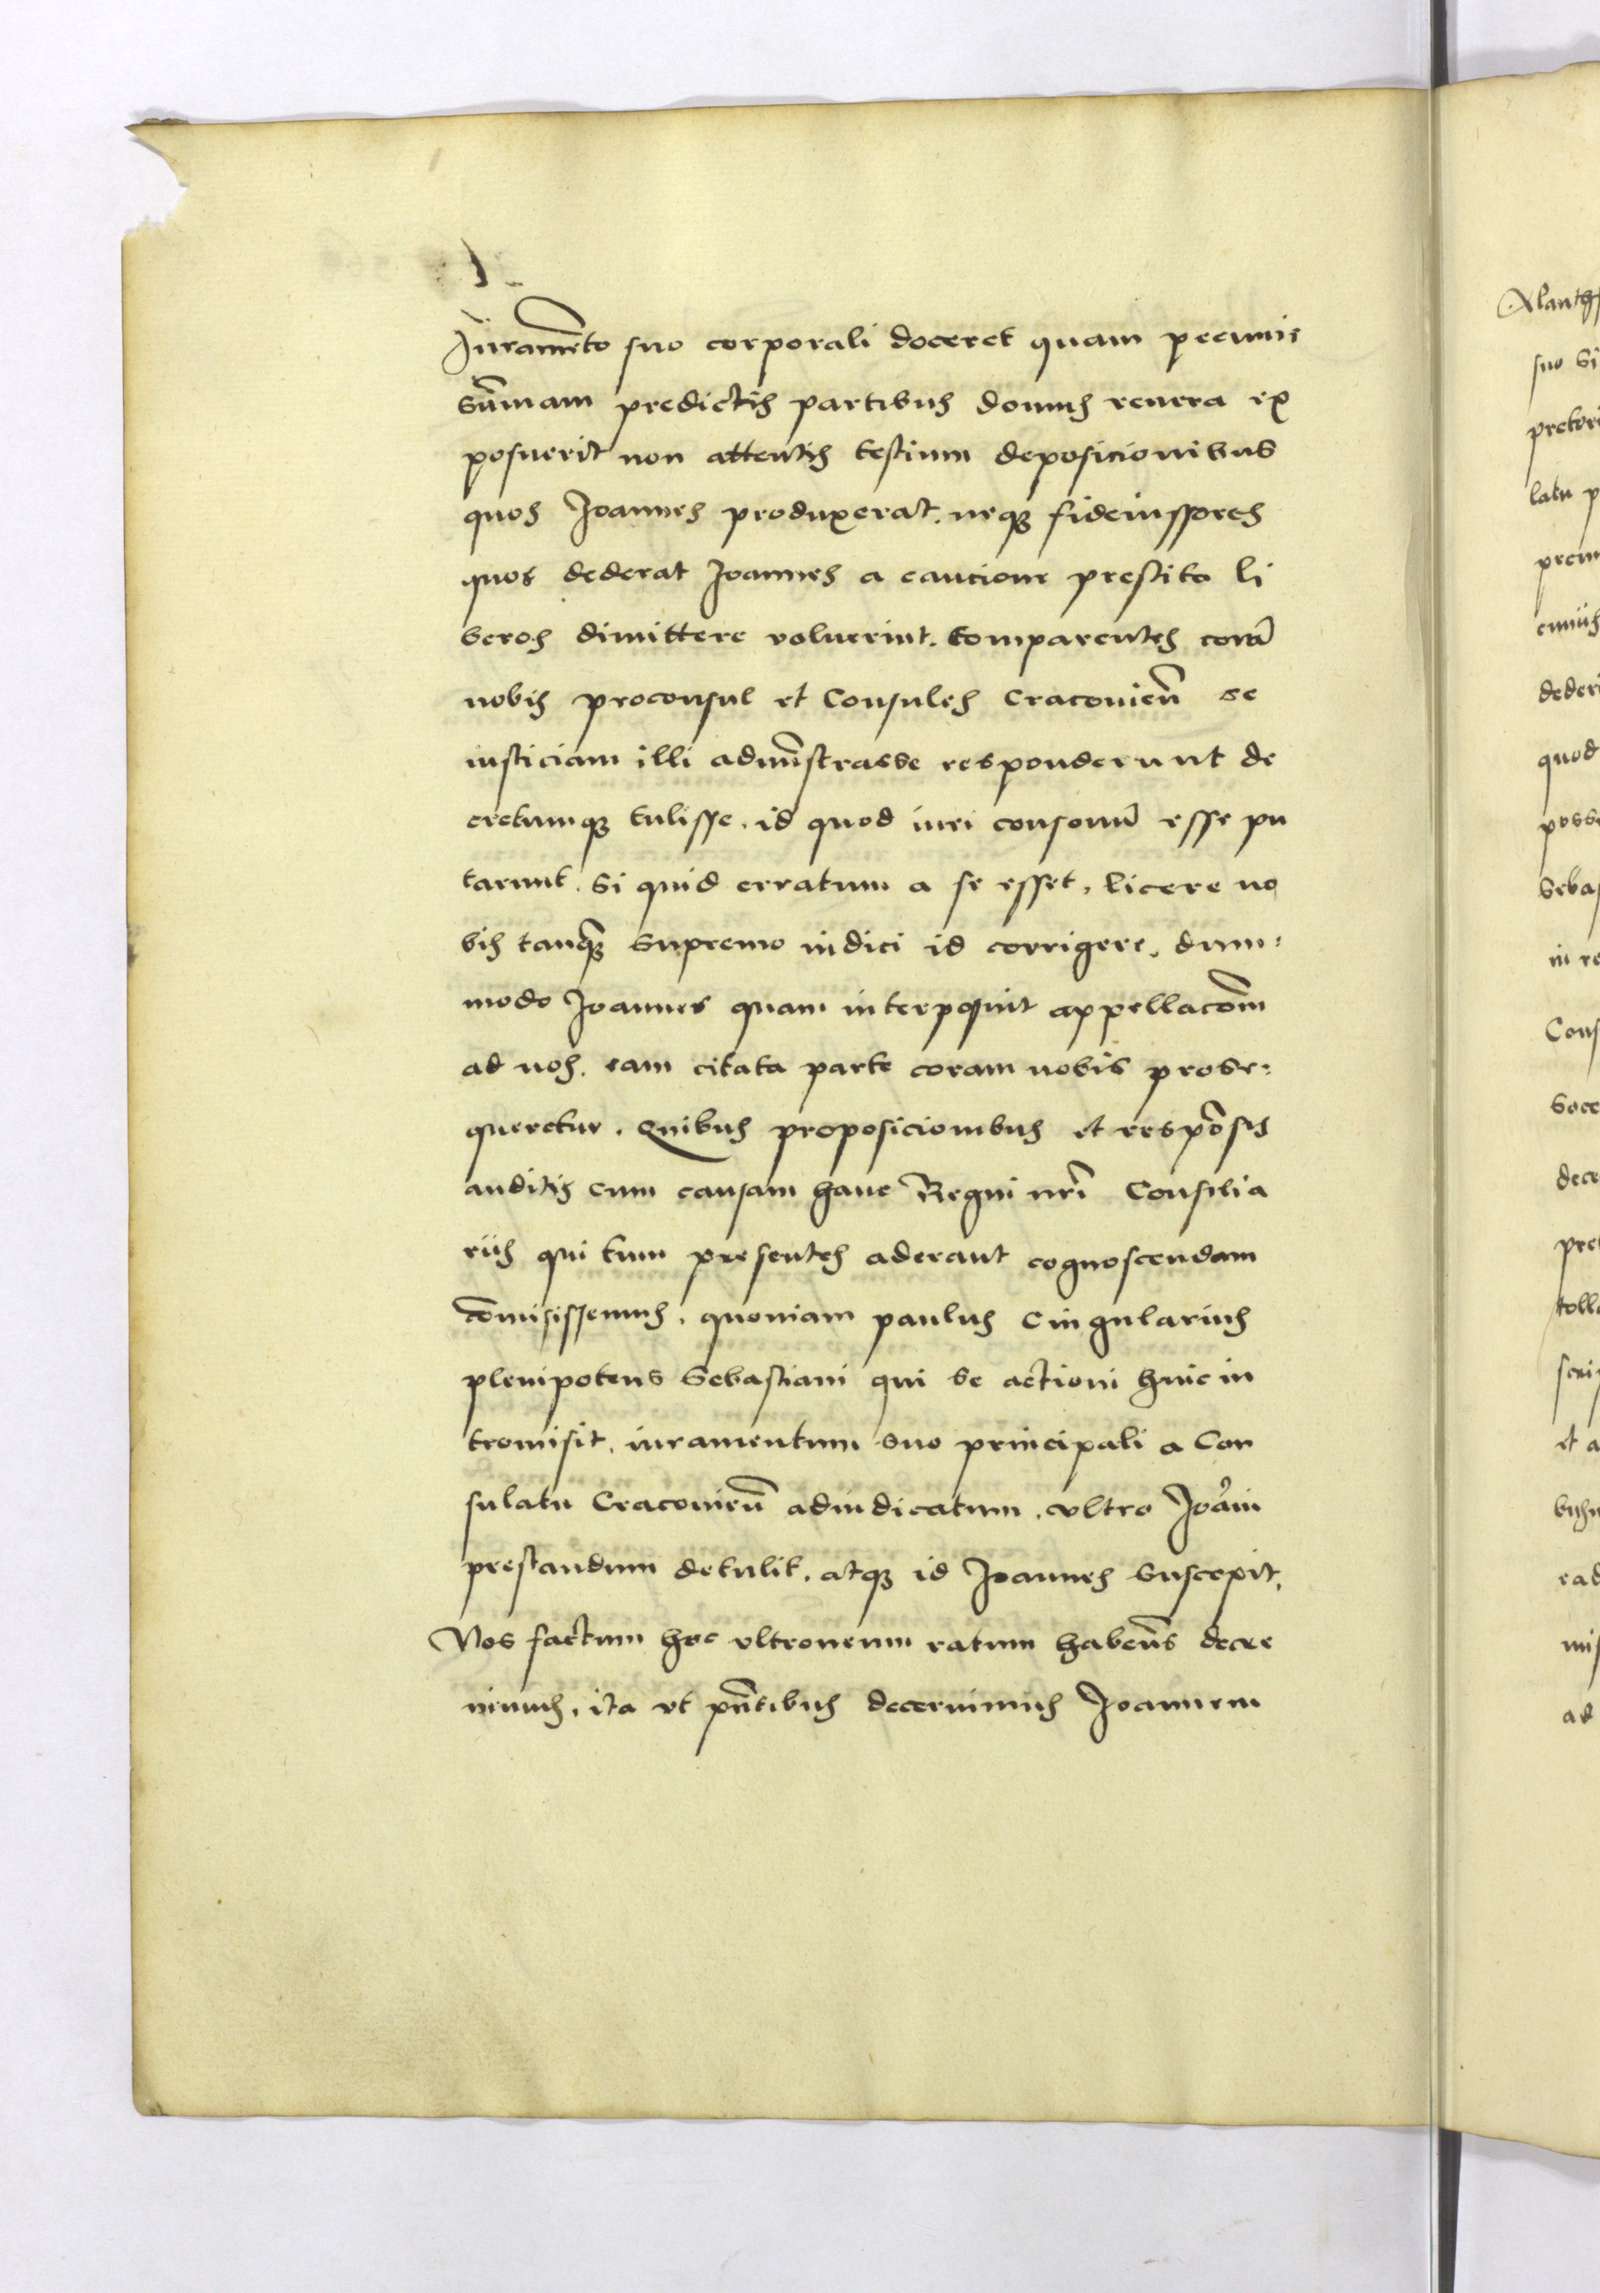 Iuramēto suo corporali doceret quam pecunie
sūmam predictis partibus domus reuera ex
posuerit non attentis testium deposicionibus
quos Joannes produxerat. neqȝ fideiussores
quos dederat Joannes a caucione prestita li
beros dimittere voluerint. Comparentes corā
nobis proconsul et Consules Cracouieñ se
iusticiam illi admīstrasse responderunt de
cretumqȝ tulisse. id quod iuri consonū esse pu
tarunt. Si quid erratum a se esset, licere no
bis tanqȝ supremo iudici id corrigere, dum:
modo Joannes quam interposuit appellacōm
ad nos. eam citata parte coram nobis prose:
queretur. Quibus proposicionibus et respōsis
auditis cum causam hanc Regni nrī Consilia
riis qui tum presentes aderant cognoscendam
cōmisissemus, quoniam paulus Cingularius
plenipotens Sebastiani qui se actioni huic in
tromisit, iuramentum suo principali a Con
sulatu Cracouieñ adiudicatum, vltro Joāni
prestandum detulit, atqȝ id Joannes suscepit,
Nos factum hoc vltroneum ratum habeñs decre
uimus, ita vt pñtibus decernimus Joannem
Alantsȝ
suo Si
pretori
latu p
dederi
quod
posse
Sebas
in re
Cons
Soce
dece
pre
tolla
scrip
et a
ead
mis
ad